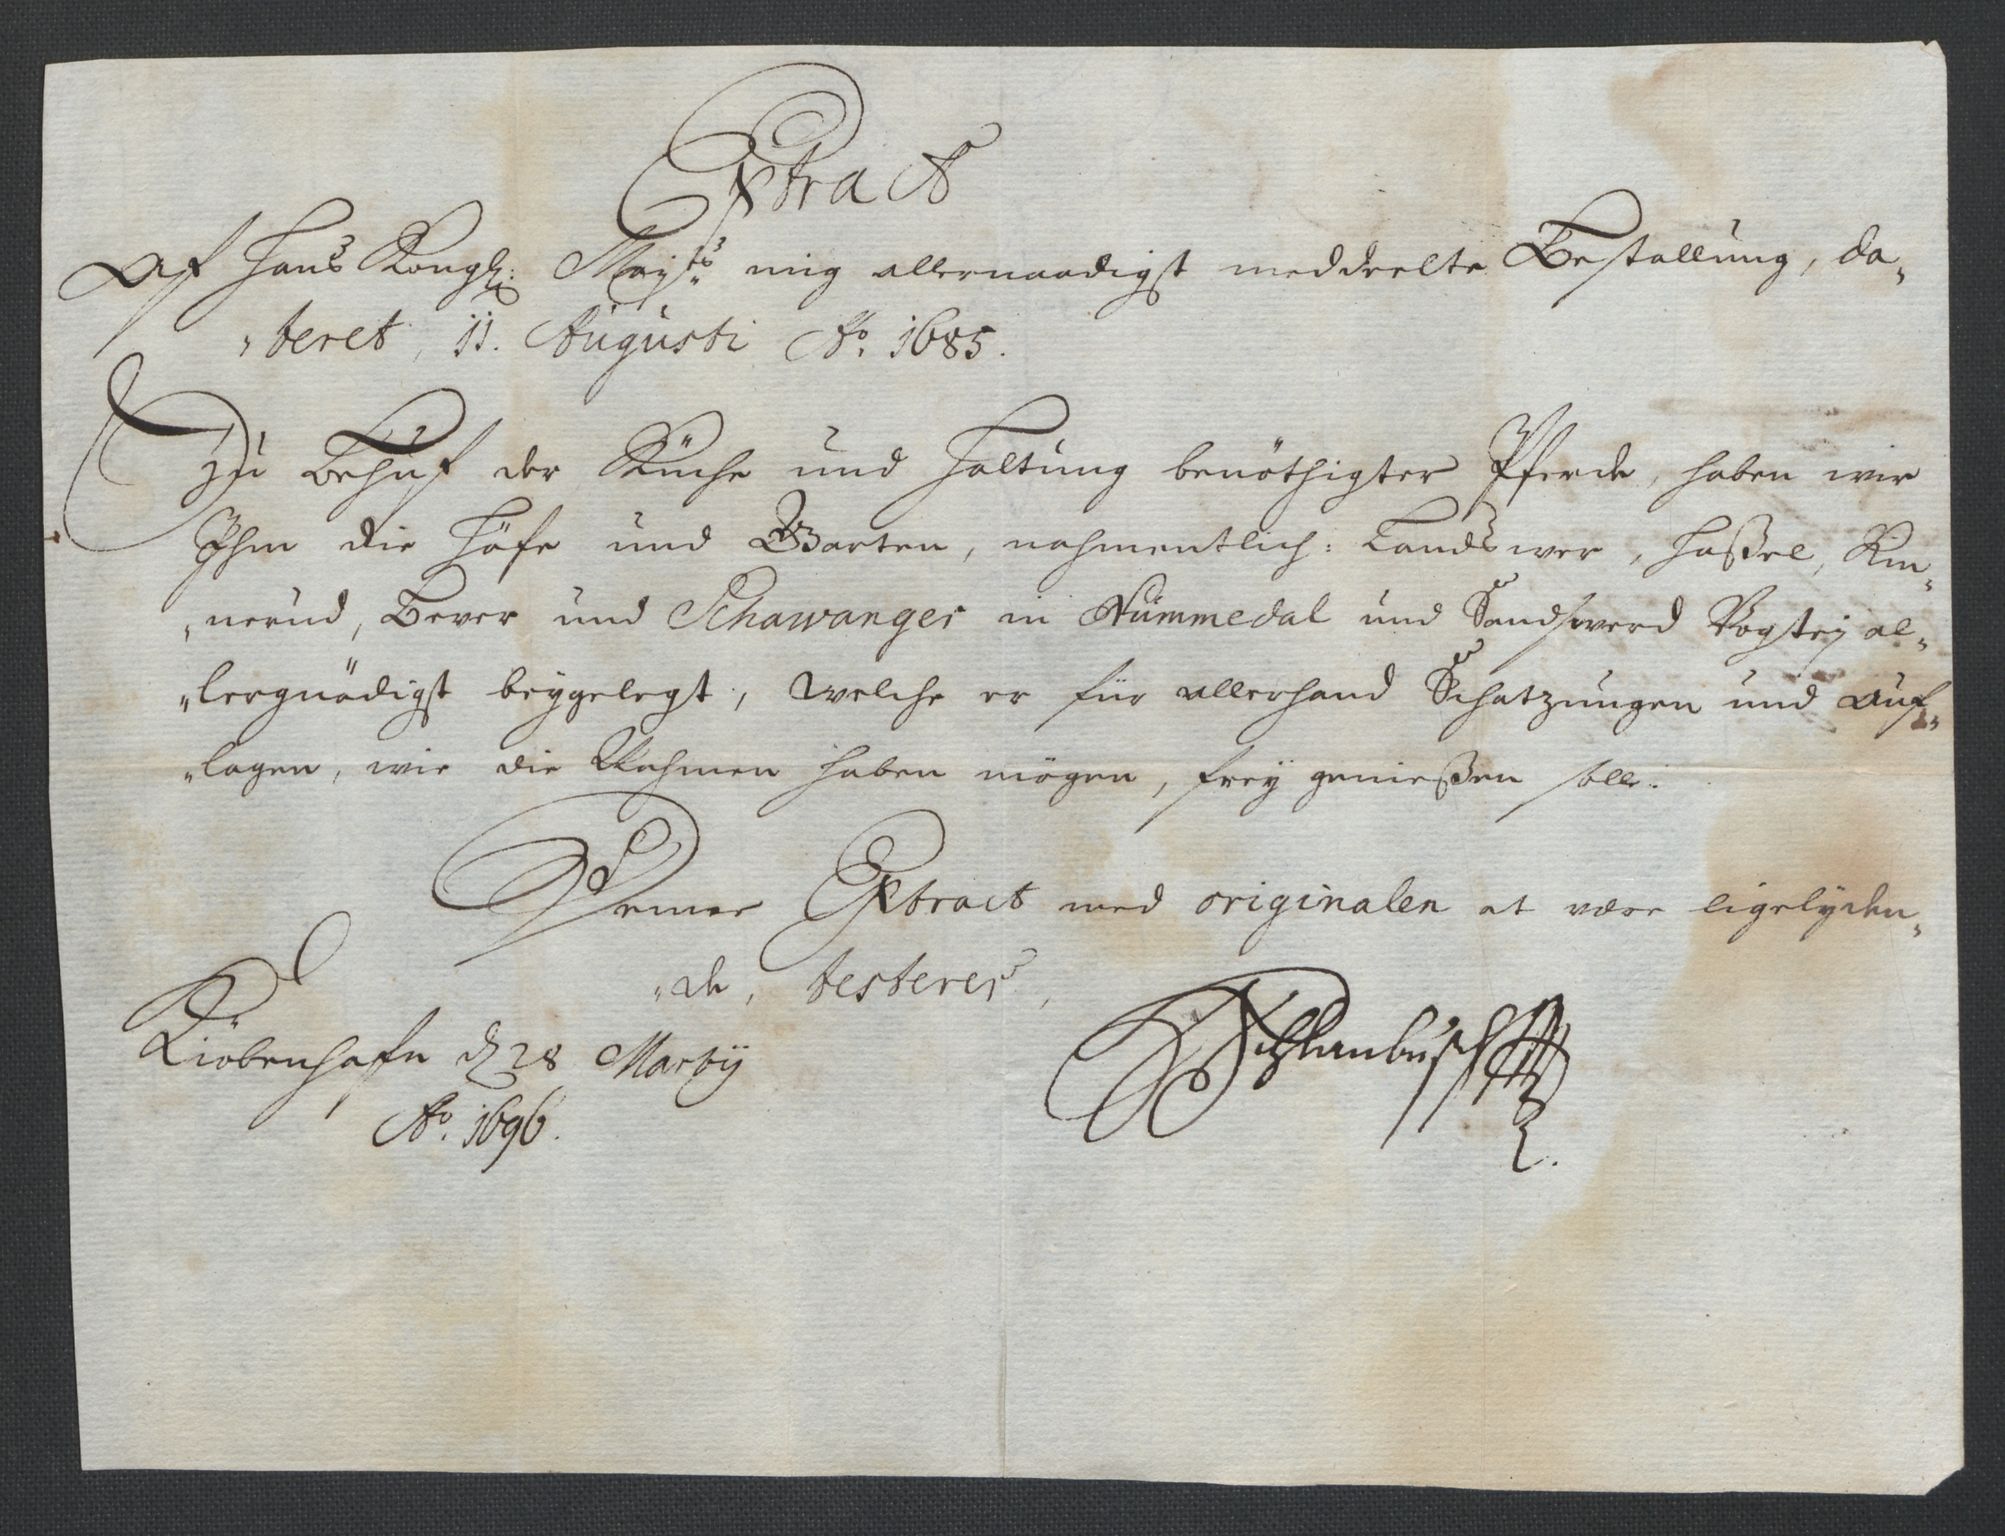 Extract
Af Hans Kongl: Mayts: mig allernaadigst meddeelte Bestallung, da-
teret, 11. Augusti Ao. 1685.
Zu Behuf der Küche und Haltung benöthigter Pferde, haben wir
Ihm die Höfe und Garten, nahmentlich: Landswer, Haßel, Kin-
nerud, Bever und Schawanger in Nummedal und Sandswerd Vogteÿ al-
lergnädigst beÿgelegt, welche er für allerhand Schatzungen und Auf-
lagen, wie die Nahmen haben mögen, freÿ genießen solle.
Denne Extract med originalen at være ligelyden-
de, testerer,
Kiöbenhafn d 28 Martÿ
Ao. 1696.
Schlanbusch